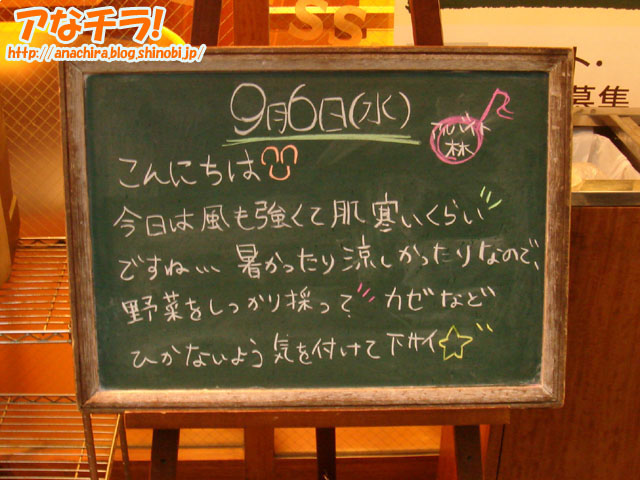 アなチラ!
http://anachira.blog.shinobi.jp/
Ss
ト・
募集
9月6日(水)
アルバイト
林
こんにちは
今日は風も強くて肌寒いくらい
ですね… 暑かったり涼しかったりなので、
野菜をしっかり採って カゼなど
ひかないよう気を付けて下サイ